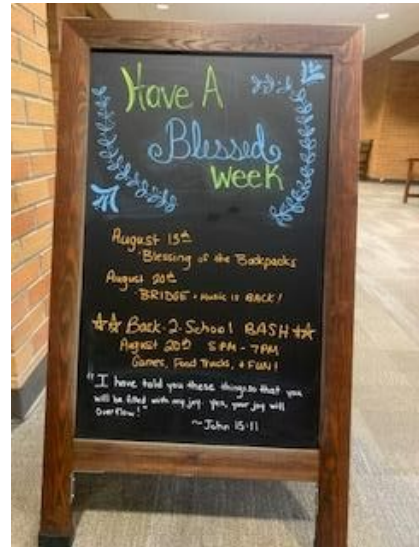 Have A
Blessed
Week
August 13th
Blessing of the Backpacks
August 20th
BRIDGE + Music is BACK!
Back-2-School BASH
August 20th 5PM-7PM
Games, Food Trucks, + FUN!
"I have told you these things so that you
will be filled with my joy. Yes, your joy will
overflow!"
~John 15:11